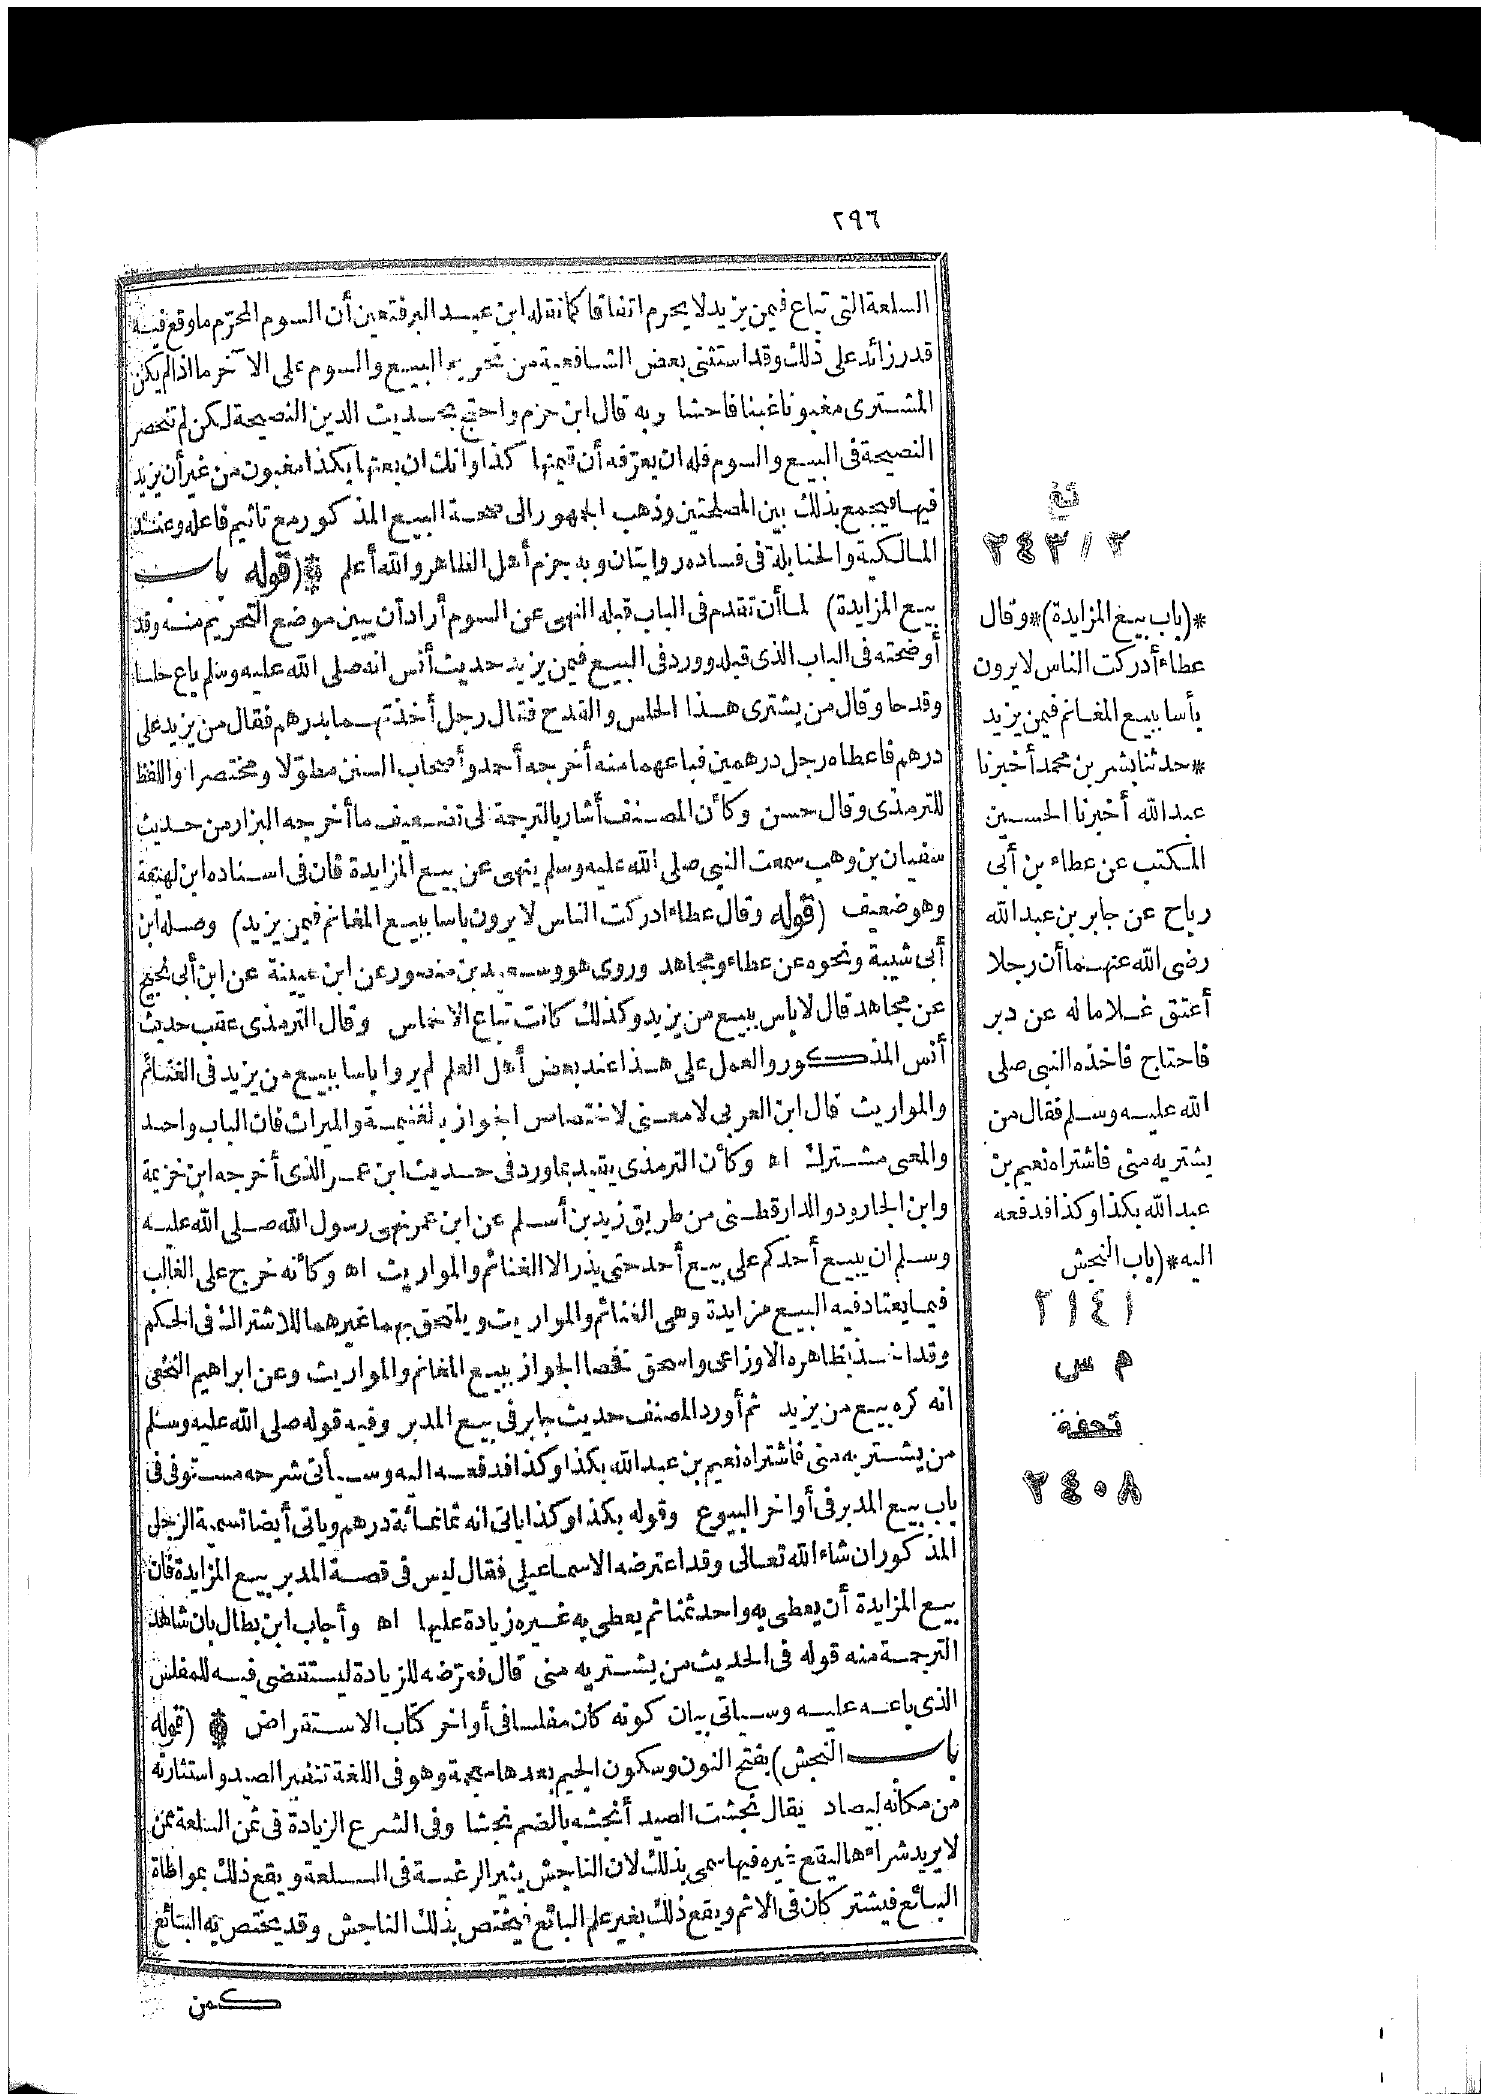 ٢٩٦
السلعة التى تباع فيمن يزيد لا يحرم اتفاقا كما نقله ابن عبد البر فتعين أن السوم المحرّم ما وقع فيه
قدر زائد على ذلك وقد استثنى بعض الشافعية من تحريم البيع والسوم على الآخر ما اذا لم يكن
المشترى مغبونا غبنا فاحشا وبه قال ابن حزم واحتج بحديث الدين النصيحة لكن لم تنحصر
النصيحة فى البيع والسوم فله ان يعرّفه أن قيمتها كذا وانك ان بعتها بكذا مغبون من غير أن يزيد
فيها فيجمع بذلك بين المصلحتين وذهب الجمهور الى صحة البيع المذكور مع تاثيم فاعله وعند
المالكية والحنابلة فى فساده روايتان وبه جزم أهل الظاهر والله أعلم * (قوله باب
بيع المزايدة) لما أن تقدم فى الباب قبله النهى عن السوم أراد أن يبين موضع التحريم منه وقد
أوضحته فى الباب الذى قبله وورد فى البيع فيمن يزيد حديث أنس انه صلى الله عليه وسلم باع حلسا
وقدحا وقال من يشترى هذا الحلس والقدح فقال رجل أخذتهما بدرهم فقال من يزيد على
درهم فاعطاه رجل درهمين فباعهما منه أخرجه أحمد وأصحاب السنن مطوّلا ومختصرا واللفظ
للترمذى وقال حسن وكأن المصنف أشار بالترجمة الى تضعيف ما أخرجه البزار من حديث
سفيان بن وهب سمعت النبى صلى الله عليه وسلم ينهى عن بيع المزايدة فان فى اسناده ابن لهيعة
وهو ضعيف (قوله وقال عطاء ادركت الناس لا يرون باسا ببيع المغانم فيمن يزيد) وصله ابن
أبى شيبة ونحوه عن عطاء ومجاهد وروى هو وسعيد بن منصور عن ابن عيينة عن ابن أبى نجيح
عن مجاهد قال لا باس ببيع من يزيد وكذلك كانت تباع الاخماس وقال الترمذى عقب حديث
أنس المذكور والعمل على هذا عند بعض أهل العلم لم يروا باسا ببيع من يزيد فى الغنائم
والمواريث قال ابن العربى لا معنى لاختصاص الجواز بالغنيمة والميراث فان الباب واحد
والمعنى مشترك اه وكأن الترمذى يقيد بما ورد فى حديث ابن عمر الذى أخرجه ابن خزيمة
وابن الجارود والدارقطنى من طريق زيد بن أسلم عن ابن عمر نهى رسول الله صلى الله عليه
وسلم ان يبيع أحدكم على بيع أحد حتى يذر الا الغنائم والمواريث اه وكأنه خرج على الغالب
فيما يعتاد فيه البيع مزايدة وهى الغنائم والمواريث ويلتحق بهما غيرهما للاشتراك فى الحكم
وقد أخذ بظاهره الاوزاعى واسحق فخصا الجواز ببيع المغانم والمواريث وعن ابراهيم النخعى
انه كره بيع من يزيد ثم أورد المصنف حديث جابر فى بيع المدبر وفيه قوله صلى الله عليه وسلم
من يشتريه منى فاشتراه نعيم بن عبد الله بكذا وكذا فدفعه اليه وسيأتى شرحه مستوفى فى
باب بيع المدبر فى أواخر البيوع وقوله بكذا وكذا ياتى انه ثمانمائة درهم وياتى أيضا تسمية الرجل
المذكور ان شاء الله تعالى وقد اعترضه الاسماعيلى فقال ليس فى قصة المدبر بيع المزايدة فان
بيع المزايدة أن يعطى به واحد ثمنا ثم يعطى به غيره زيادة عليها اه وأجاب ابن بطال بان شاهد
الترجمة منه قوله فى الحديث من يشتريه منى قال فعرّضه للزيادة ليستقضى فيه للمفلس
الذى باعه عليه وسياتى بيان كونه كان مفلسا فى أواخر كتاب الاستقراض * (قوله
باب النجش) بفتح النون وسكون الجيم بعدها معجمة وهو فى اللغة تنفير الصيد واستثارته
من مكانه ليصاد يقال نجشت الصيد أنجشه بالضم نجشا وفى الشرع الزيادة فى ثمن السلعة ممن
لا يريد شراءها ليقع غيره فيها سمى بذلك لان الناجش يثير الرغبة فى السلعة ويقع ذلك بمواطاة
البائع فيشتركان فى الاثم ويقع ذلك بغير علم البائع فيختص بذلك الناجش وقد يختص به البائع
كمن
تغ
٢٤٣/٣
*(باب بيع المزايدة)* وقال
عطاء أدركت الناس لا يرون
بأسا ببيع المغانم فيمن يزيد
*حدثنا بشر بن محمد أخبرنا
عبد الله أخبرنا الحسين
المكتب عن عطاء بن أبى
رباح عن جابر بن عبد الله
رضى الله عنهما أن رجلا
أعتق غلاما له عن دبر
فاحتاج فاخذه النبى صلى
الله عليه وسلم فقال من
يشتريه منى فاشتراه نعيم بن
عبد الله بكذا وكذا فدفعه
اليه *(باب النجش
٢١٤١
م س
تحفة
٢٤٠٨